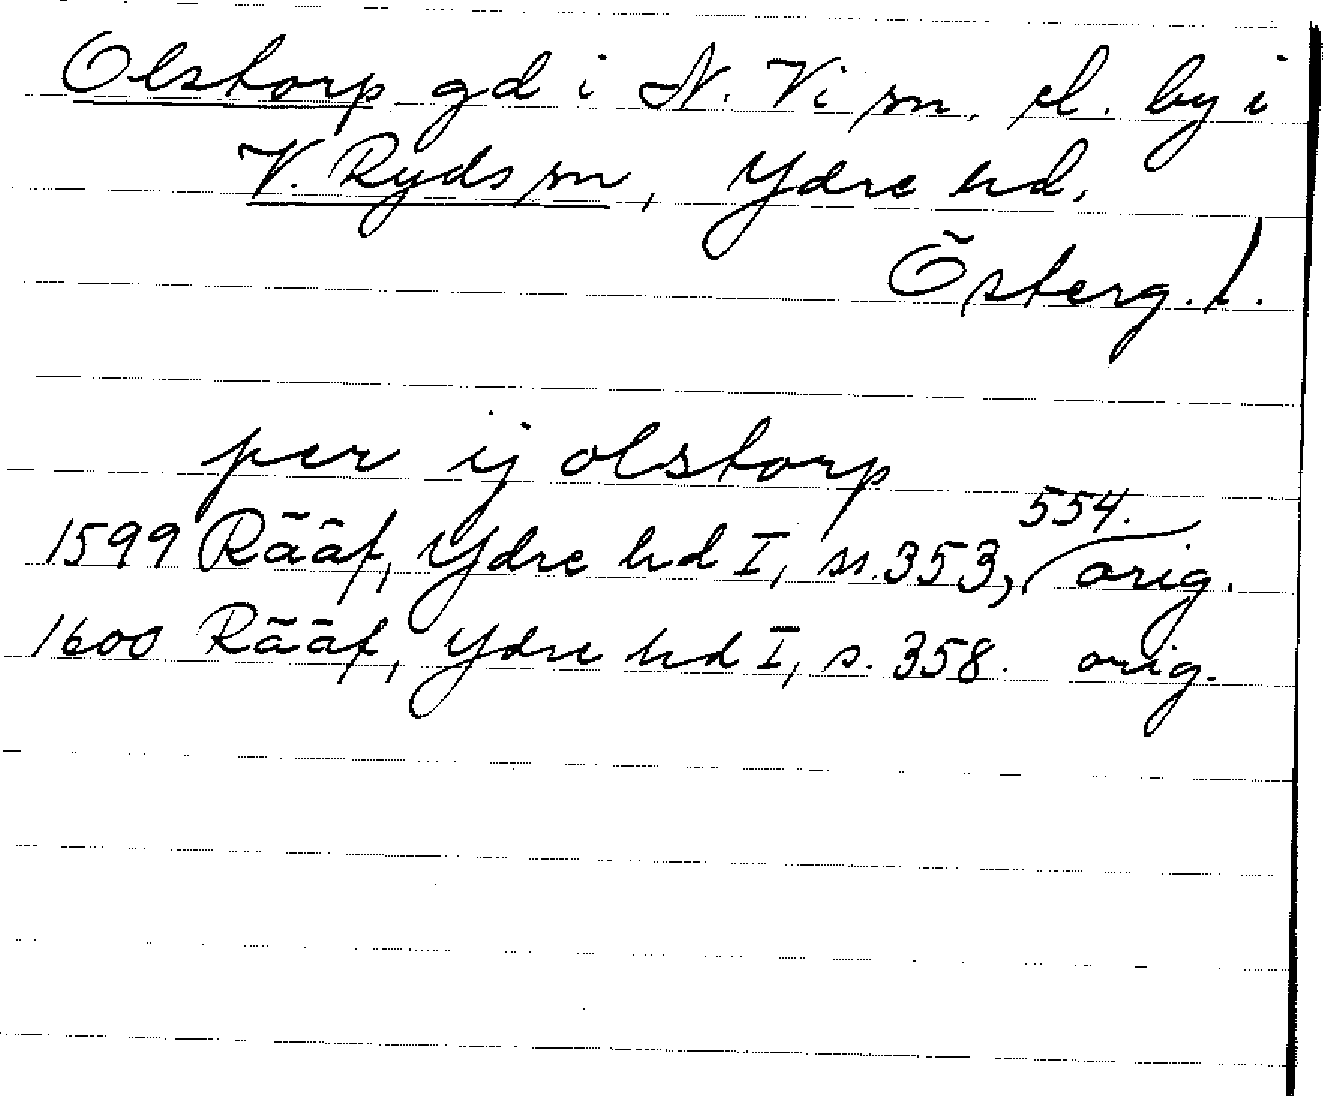 Olstorp gd i N. Vi sn, el. by i
V. Ryds sn, Ydre hd,
Österg. l.
per ij olstorp
554.
1599 Rääf, Ydre hd I, ss. 353, orig.
1600 Rääf, Ydre hd I, s. 358. orig.